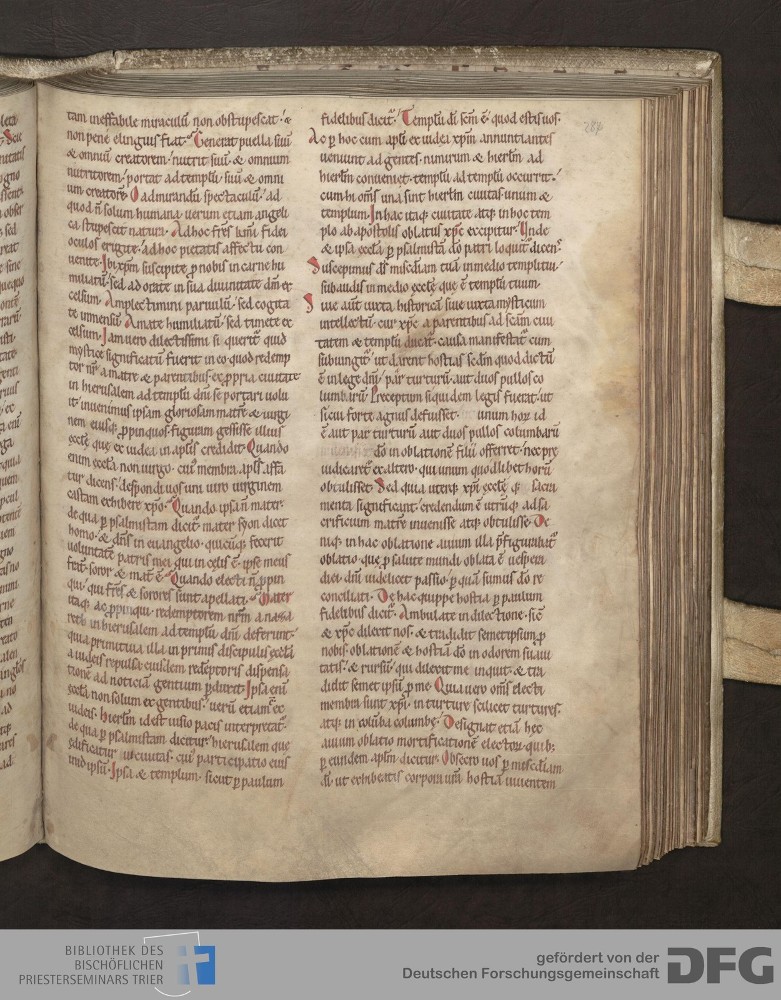 tam ineffabile miraculũ non obstupescat · &
non pene elinguis fiat · Generat puella suũ
& omniũ creatorem · nutrit suũ · & omnium
nutritorem · portat ad templũ · suũ & omni
um creatorẽ · O admirandũ spectaculũ · ad
quod ñ solum humana uerum etiam angeli
ca stupescit natura · Ad hoc frẽs kmi fidei
oculos erigite · ad hoc pietatis affectũ con
uertite · Ibi xpm suscipite p nobis in carne hu
miliatũ · sed adorate in sua diuinitate dm̃ ex
celsum · Amplectimini paruulũ · sed cogita
te inmensũ · Amate humiliatũ · sed timete ex
celsum · Iam uero dilectissimi si querit᷑ quid
mystice significatũ fuerit in eo · quod redemp
tor nr̃ a matre & parentibus · ex ppria ciuitate
in hierusalem ad templũ dñi se portari uolu
it · inuenimus ipsam gloriosam matrẽ & uirgi
nem eiusq; ppinquos · figuram gessisse illius
ęcclę que ex iudea in aplis credidit · Quando
enim ęccła non uirgo · cui᷒ membra apls affa
tur dicens · despondi uos uni uiro uirginem
castam exhibere xpo · Quando ipsa ñ mater ·
de qua p psalmistam dicit᷑ · mater syon dicet
homo · & dñs in euuangelio · quicũq; fecerit
uoluntatẽ patris mei qui in cęlis ẽ · ipse meus
frat᷑ · soror · & mat᷑ ẽ · Quando electi ñ ppin
qui · qui frẽs & sorores sunt apellati · Mater
itaq; ac ppinqui · redemptorem nrm̃ a naza
reth in hierusalem ad templũ dñi deferunt ·
quia primitiua illa in primis discipulis ęccła
a iudeis repulsa · eiusdem redẽptoris dispensa
tionẽ ad noticiã gentium pduxit · Ipsa eni᷒
ęccła non solum ex gentibus · uerũ etiam ex
iudeis · hierłm id est uisio pacis interpretat᷑ ·
de qua p psalmistam dicitur · hierusalem que
edificatur ut ciuitas · cui᷒ participatio eius
in id ipsũ · Ipsa & templum · sicut p paulum
fidelibus dicit᷑ · Templũ di scm̃ ẽ · quod estis uos ·
Ac p hoc cum apli ex iudea xpm annuntiantes
ueniunt ad gentes · naturum & hierłm ad
hierłm conueniet · templũ ad templũ occurrit ·
cum hi om̃s una sint hierłm ciuitas unum &
templum · In hac itaq; ciuitate atq; in hoc tem
plo ab apostolis oblatus xpc excipitur · Unde
& ipsa ęccła p psalmistã dõ patri loquit᷑ dicen᷒
Suscepimus ds̃ misc̃diam tuã in medio templi tui ·
subaudis in medio ęcclę · que ẽ templũ tuum ·
Siue aut᷑ iuxta historicũ siue iuxta mysticum
intellectũ · cur xpc a parentibus ad scãm ciui
tatem & templũ ducat᷑ · causa manifestat᷑ cum
subiungit᷑ · ut darent hostias scđm quod dictũ
ẽ in lege dñi · par turturũ · aut duos pullos co
lumbarũ · Preceptum siquidem legis fuerat · ut
si cui forte agnus defuisset · unum hor̃ id
ẽ aut par turturũ aut duos pullos columbarũ
dõ in oblationẽ filii offerret · nec pre
iudicaret᷑ ex altero · qui unum quodlibet horũ
obtulisset · Sed quia uterq; xpi ęcclę q; sacra
menta significant · credendum ẽ utrũq; ad sa
crificium matrẽ inuenisse atq; obtulisse · De
niq; in hac oblatione auium illa pfigurabat᷑
oblatio · que p salute mundi oblata ẽ uesperi
diei · dñi uidelicet passio · p quã sumus dõ re
conciliati · De hac quippe hostia p paulum
fidelibus dicit᷑ · Ambulate in dilectione · sic᷑
& xpc dilexit nos · & tradidit semetipsum p
nobis oblationẽ & hostiã dõ in odorem suaui
tatis · & rursũ · qui dilexit me inquit · & tra
didit semet ipsũ p me · Quia uero om̃s electi
membra sunt xpi · in turture scilicet turtures ·
atq; in colũba columbę · Designat etiã hec
auium oblatio mortificationẽ elector̃ · quib;
p eundem aplm̃ dicitur · Obsecro uos p misc̃diam
di᷒ · ut exhibeatis corpora ur̃a hostiã uiuentem
284
BIBLIOTHEK DES
BISCHÖFLICHEN
PRIESTERSEMINARS TRIER
gefördert von der
Deutschen Forschungsgemeinschaft
DFG